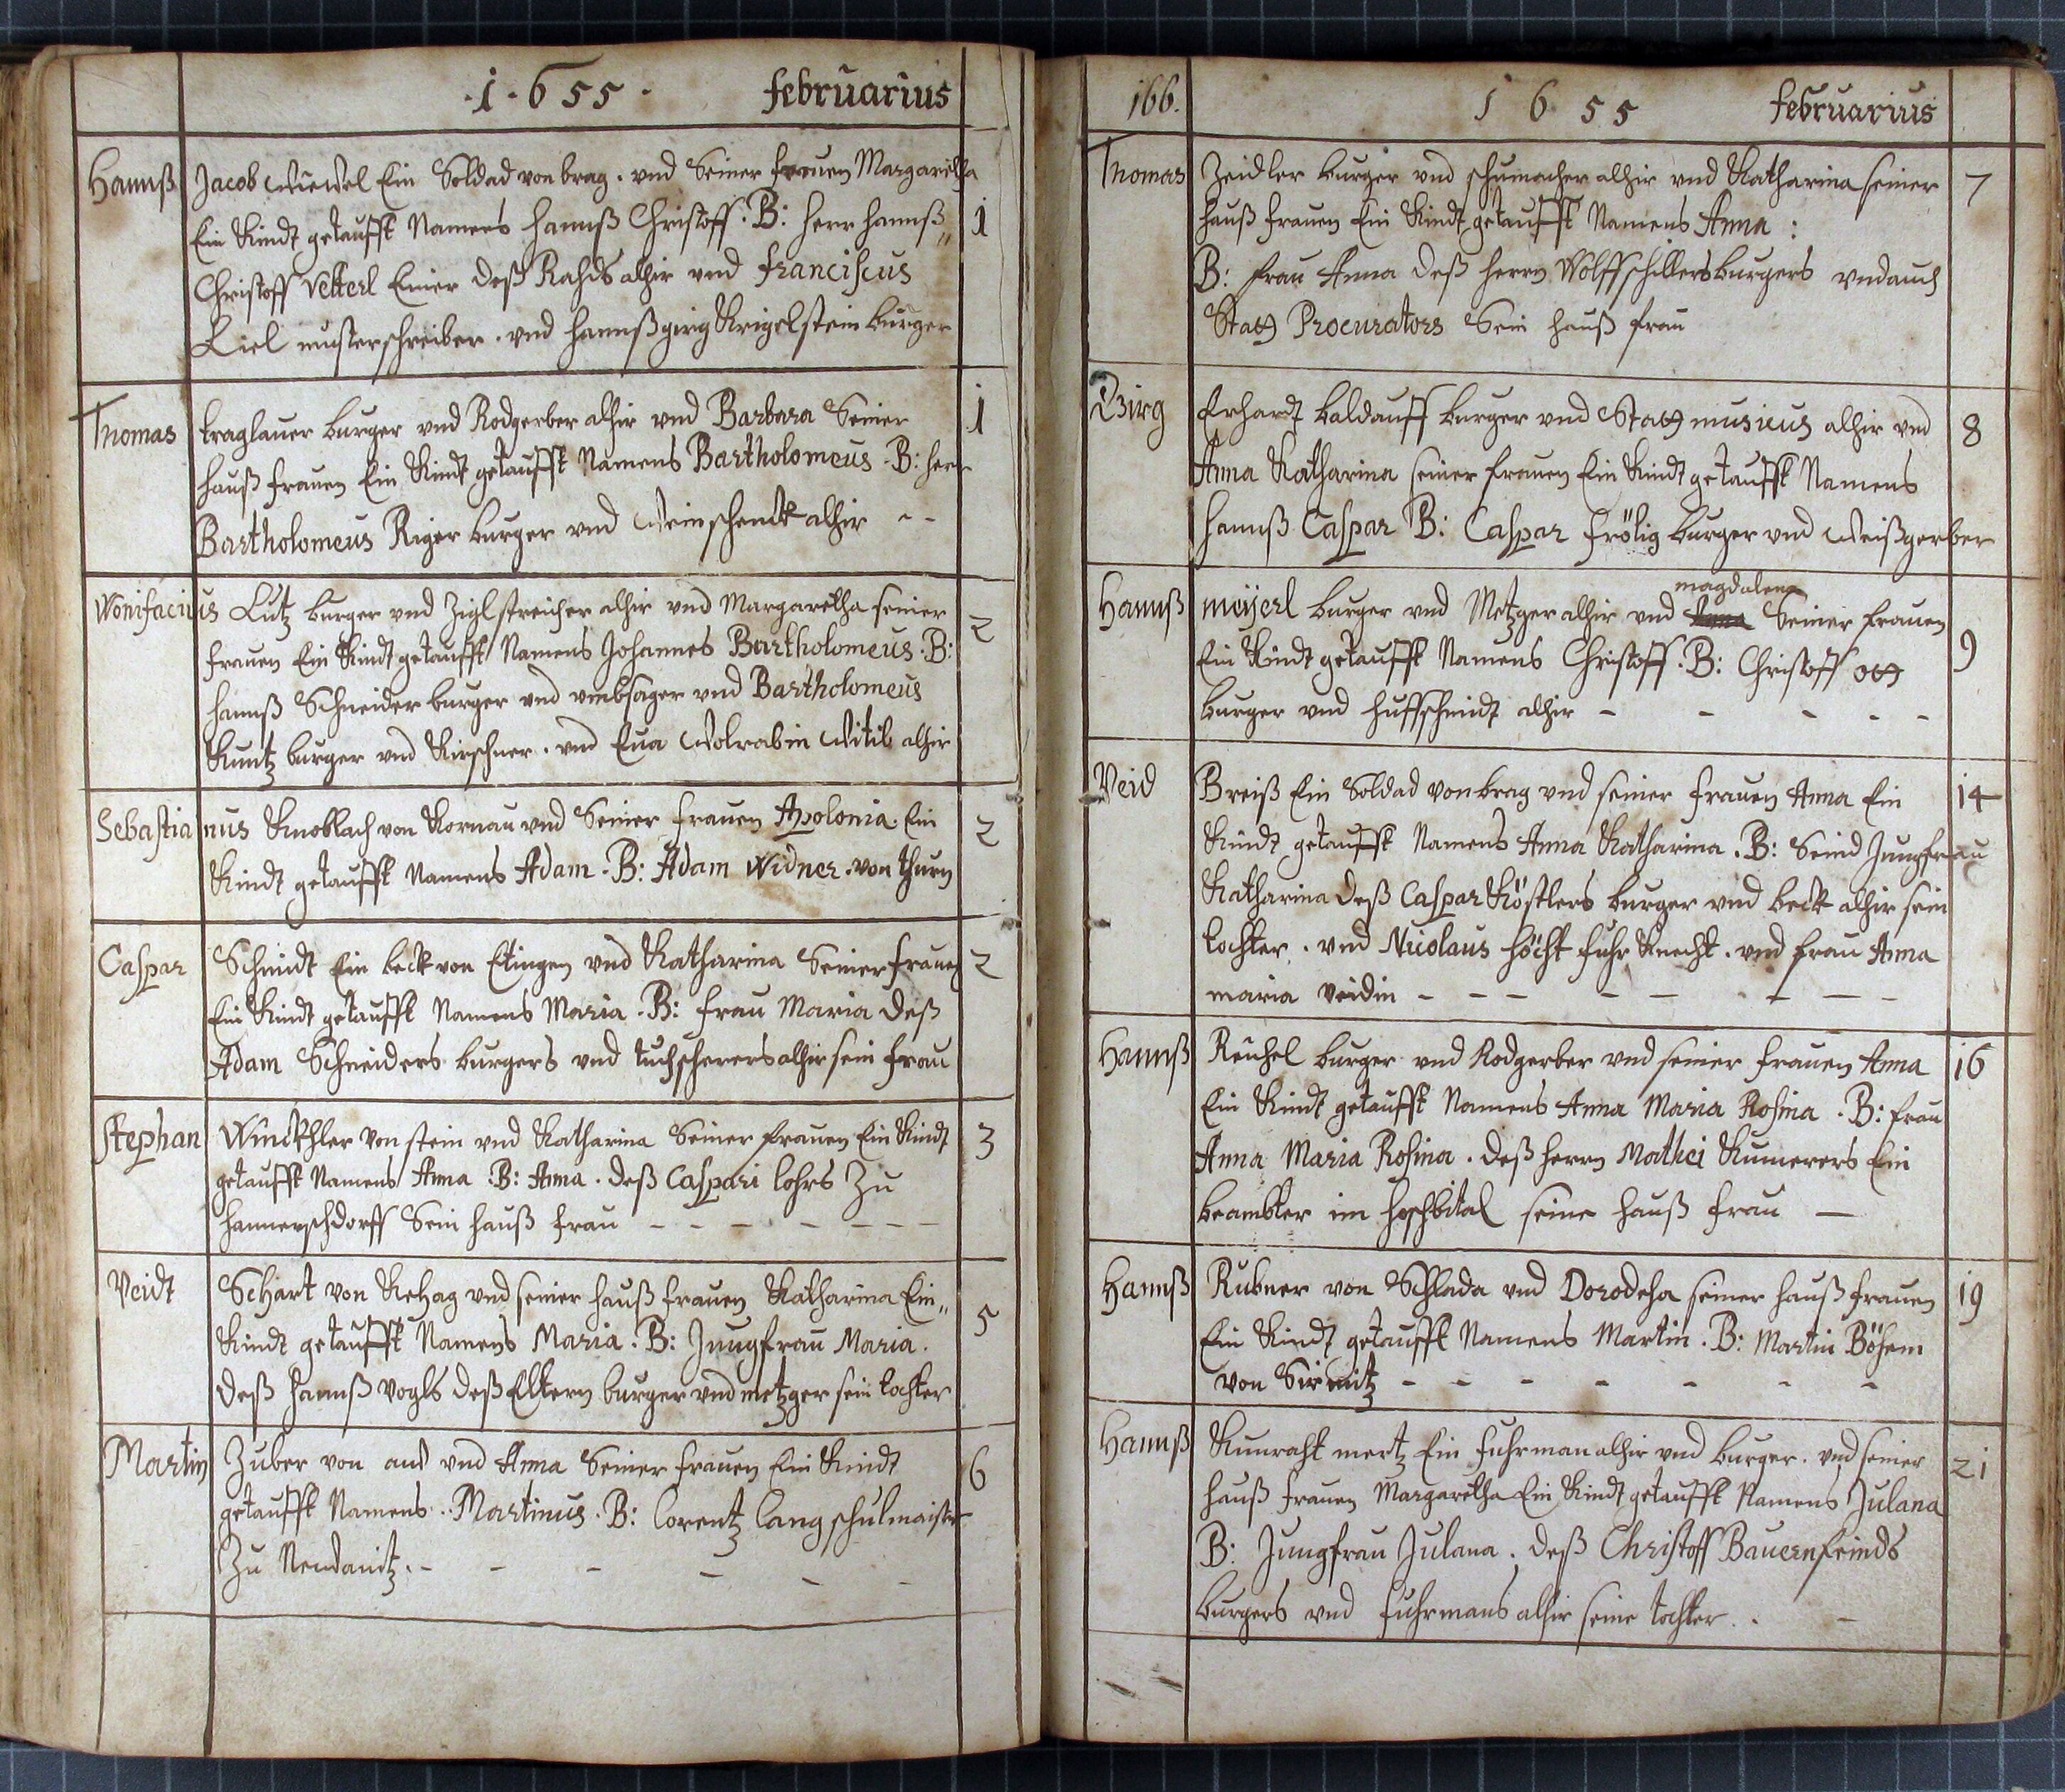 ·1·655· februarius
Hannß Jacob Ein Soldad von brag. vnd Seiner frauen Margaretha
Ein Kindt getaufft Namens hannß Christoff. B: herr hannß 1
Christoff Vetterl Einer deß Rahds alhir vnd franciscus
Liel musterschreiber. vnd hannß girg Krigelstein burger
Thomas traglauer burger vnd Rodgerber alhir vnd Barbara Seiner 1
hauß frauen Ein Kindt getaufft Namens Bartholomeus. B: herr
Bartholomeus Riger burger vnd Weinschenck alhir - -
Wonifacius Lutz burger vnd Ziglstreicher alhir vnd Margaretha seiner 2
frauen Ein Kindt getaufft Namens Johannes Bartholomeus. B:
hannß Schneider burger vnd vmbsager vnd Bartholomeus
Kuntz burger vnd Kirschner. vnd Eua Wolrabin Witib alhir
Sebastianus Knoblach von Kornau vnd Seiner frauen Apolonia Ein 2
Kindt getaufft Namens Adam. B: Adam Widner. von thurn
Caspar Schmidt Ein beck von Etingen vnd Katharina Seiner frauen 2
Ein Kindt getaufft Namens Maria. B: frau Maria deß
Adam Schneiders burgers vnd tuchscherers alhir sein frau
Stephan Winckhler von stein vnd Katharina Seiner frauen Ein Kindt 3
getaufft Namens Anna. B: Anna. deß Caspari lohrs Zu
hannerschdorff Sein hauß frau - - - - - - -
Veidt Schart von Rehag vnd seiner hauß frauen Katharina Ein 5
Kindt getaufft Namens Maria. B: Jungfrau Maria.
deß hannß Vogls deß Eltern burger vnd metzger sein tochter
Martin Zuber von auß vnd Anna Seiner frauen Ein Kindt 6
getaufft Namens. Martinus. B: Lorentz Lang schulmaister
Zu Nendanitz. - - - - - -
166. 1 6 55 februarius
Thomas Zeidler burger vnd schumacher alhir vnd Katharina seiner 7
hauß frauen Ein Kindt getaufft Namens Anna :
B: frau Anna deß herrn Wolff schillers burgers vnd auch
Statt Procurators Sein hauß frau
Girg Erhardt baldauff burger vnd Statt musicus alhir vnd 8
Anna Katharina seiner frauen Ein Kindt getaufft Namens
hannß Caspar B: Caspar frölig burger vnd Weißgerber
magdalena
Hannß meyerl burger vnd Metzger alhir vnd Anna Seiner frauen
Ein Kindt getaufft Namens Christoff. B: Christoff ott 9
burger vnd huffschmidt alhir - - - - -
Veid Breiß Ein Soldad von brag vnd seiner frauen Anna Ein 14
Kindt getaufft Namens Anna Katharina. B: Seind Jungfrau
Katharina deß Caspar Köstlers burger vnd beck alhir sein
tochter. vnd Nicolaus höcht fuhr Knecht. vnd frau Anna
maria veidin - - - - - - - -
Hannß Reichel burger vnd Rodgerber vnd seiner frauen Anna 16
Ein Kindt getaufft Namens Anna Maria Rosina. B: frau
Anna Maria Rosina. deß herrn Mathei Kumerers Ein
beambter im hoschbital seine hauß frau -
Hannß Rubner von Schlada vnd Dorodeha seiner hauß frauen 19
Ein Kindt getaufft Namens Martin. B: Martin Böhem
von Sirmitz - - - - - - -
Hannß Kunraht mertz Ein fuhrman alhir vnd burger. vnd seiner 21
hauß frauen Margaretha Ein Kindt getaufft Namens Julana
B: Jungfrau Julana. deß Christoff Bauernfeinds
burgers vnd fuhrmans alhir seine tochter. . -